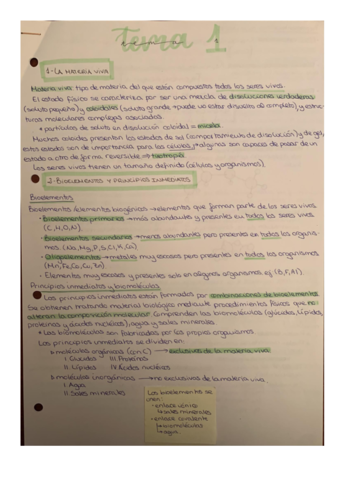 tema 1
1- LA MATERIA VIVA
Materia viva: tipo de materia del que están compuestos todos los seres vivos.
El estado físico se caracteriza por ser una mezcla de disoluciones verdaderas
(soluto pequeño) y coloidales (soluto grande → puede no estar disuelto del completo) y estruc
turas moleculares complejas asociadas.
* partículas de soluto en disolución coloidal → micelas
Muchos coloides presentan los estados de sol (comportamiento de disolución) y de gel,
estos estados son de importancia para las células y algunos son capaces de pasar de un
estado a otro de forma reversible → tixotropía
Los seres vivos tienen un tamaño definido (células y organismos)
2- BIOELEMENTOS Y PRINCIPIOS INMEDIATOS
Bioelementos
Bioelementos/elementos biogénicos → elementos que forman parte de los seres vivos.
· Bioelementos primarios → más abundantes y presentes en todos los seres vivos
(C, H, O, N).
· Bioelementos secundarios → menos abundantes pero presentes en todos los organis-
mos. (Na, Mg, P, S, Cl, K, Ca)
· Oligoelementos → metales muy escasos pero presentes en todos los organismos
(Mn, Fe, Co, Cu, Zn)
· Elementos muy escasos y presentes solo en algunos organismos ej (B, F, Al).
Principios inmediatos y biomoléculas
Los principios inmediatos están formados por combinaciones de bioelementos.
Se obtienen tratando materia biológica mediante procedimientos físicos que no
alteran la composición molecular. Comprenden las biomoléculas (glúcidos, lípidos,
proteínas y ácidos nucleicos), agua y sales minerales.
* Las biomoléculas son fabricadas por los propios organismos
Los principios inmediatos se dividen en:
moléculas orgánicas (con C) → exclusivas de la materia viva
I. Glúcidos III. Proteínas
II. Lípidos IV. Ácidos nucleicos
moléculas inorgánicas → no exclusivas de la materia viva
I. Agua
II. Sales minerales
Los bioelementos se
unen:
- enlace iónico
↳ sales minerales
- enlace covalente
↳ biomoléculas
↳ agua